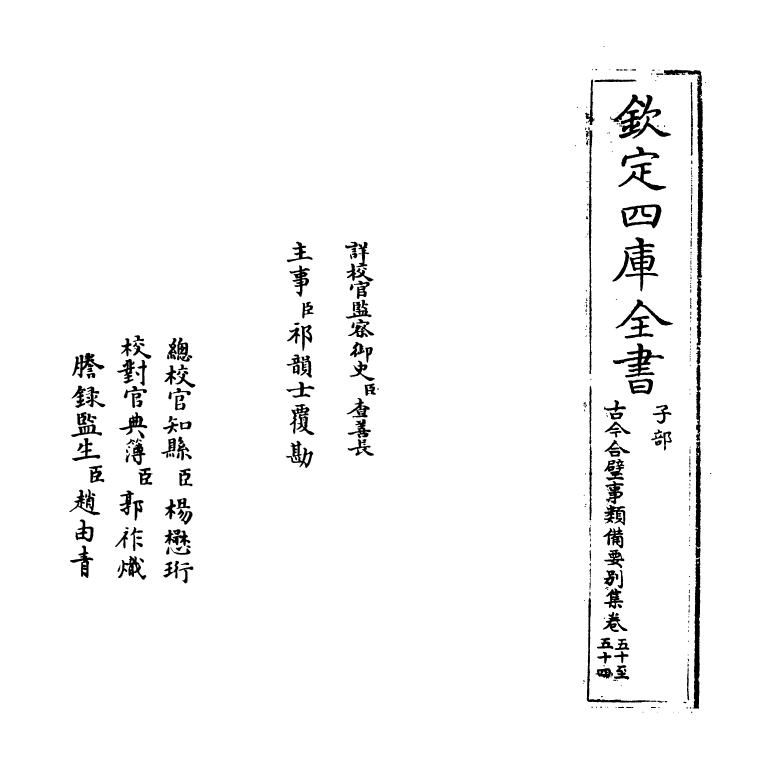 欽定四庫全書
子部
古今合璧事類備要別集卷五十至五十四
詳校官監察御史臣查善長
主事臣祁韻士覆勘
總校官知縣臣楊懋珩
校對官典簿臣郭祚熾
謄錄監生臣趙由青